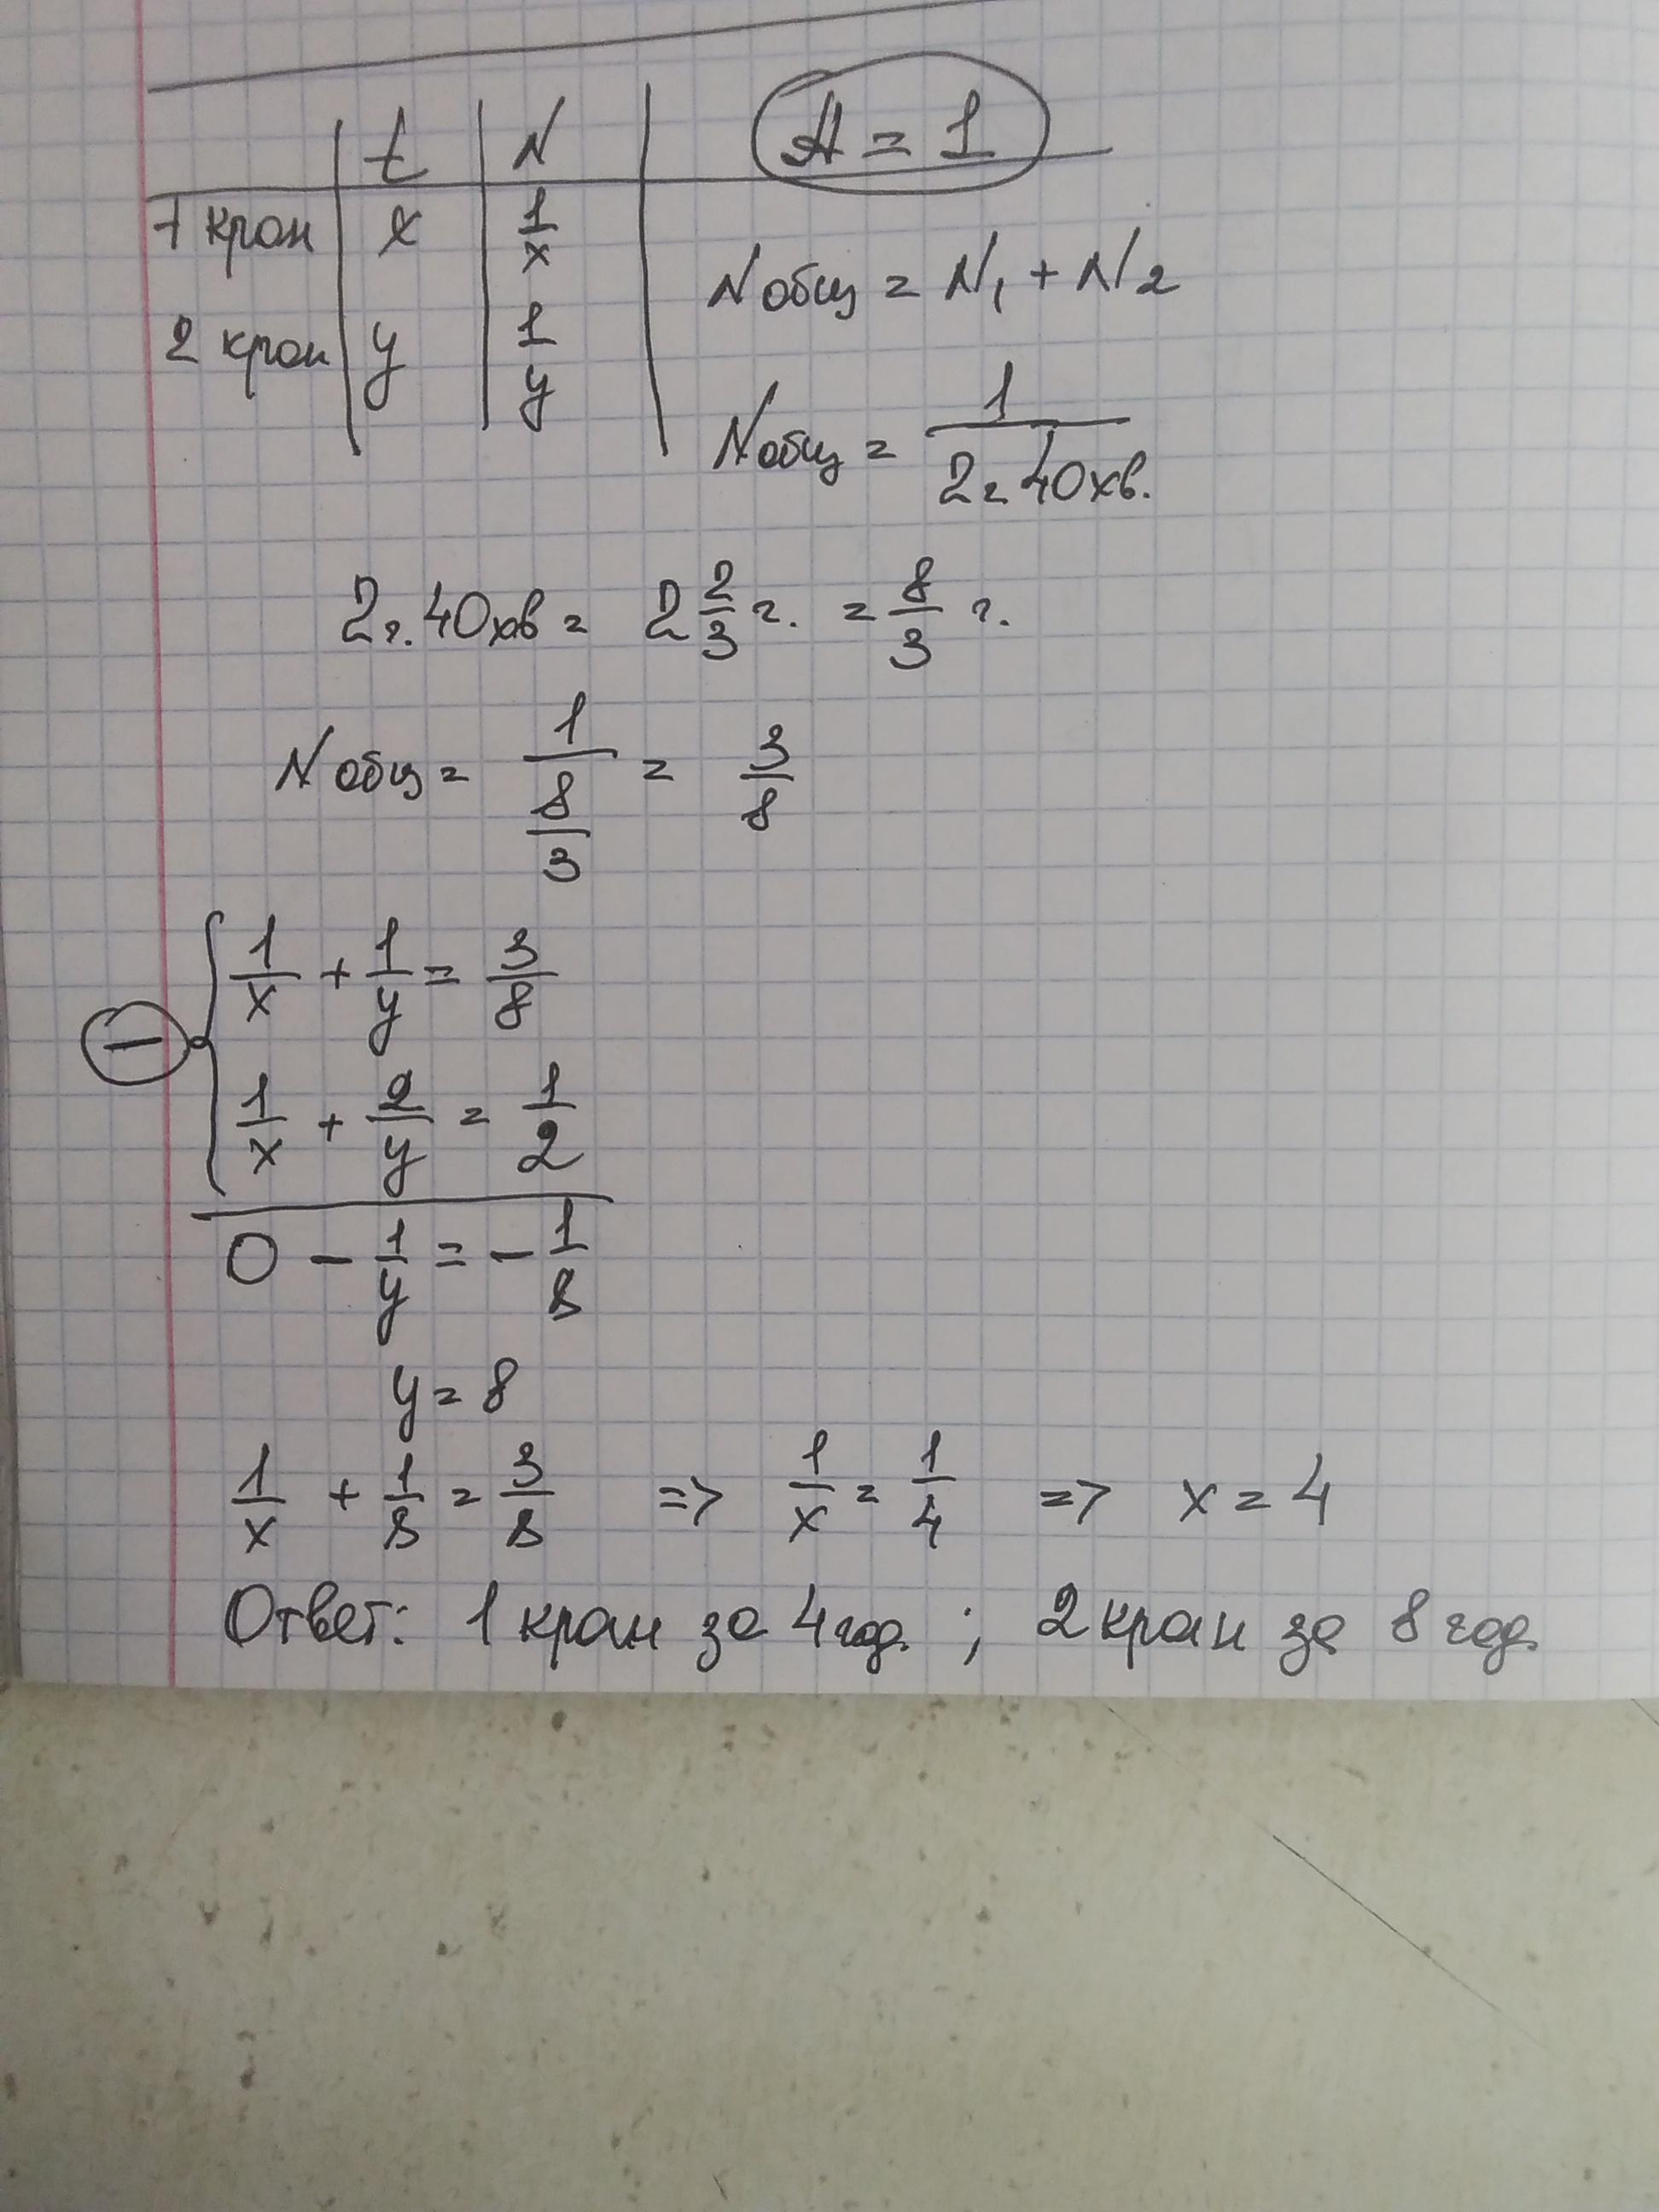 t | N
A = 1
1 кран | x | 1/x
2 кран | y | 1/y
N общ = N₁ + N₂
N общ = 1/(2г 40хв.)
2г. 40хв = 2 2/3 г. = 8/3 г.
N общ = 1/(8/3) = 3/8
1/x + 1/y = 3/8
−
1/x + 2/y = 1/2
0 − 1/y = − 1/8
y = 8
1/x + 1/8 = 3/8 => 1/x = 1/4 => x = 4
Ответ: 1 кран за 4 год. ; 2 кран за 8 год.